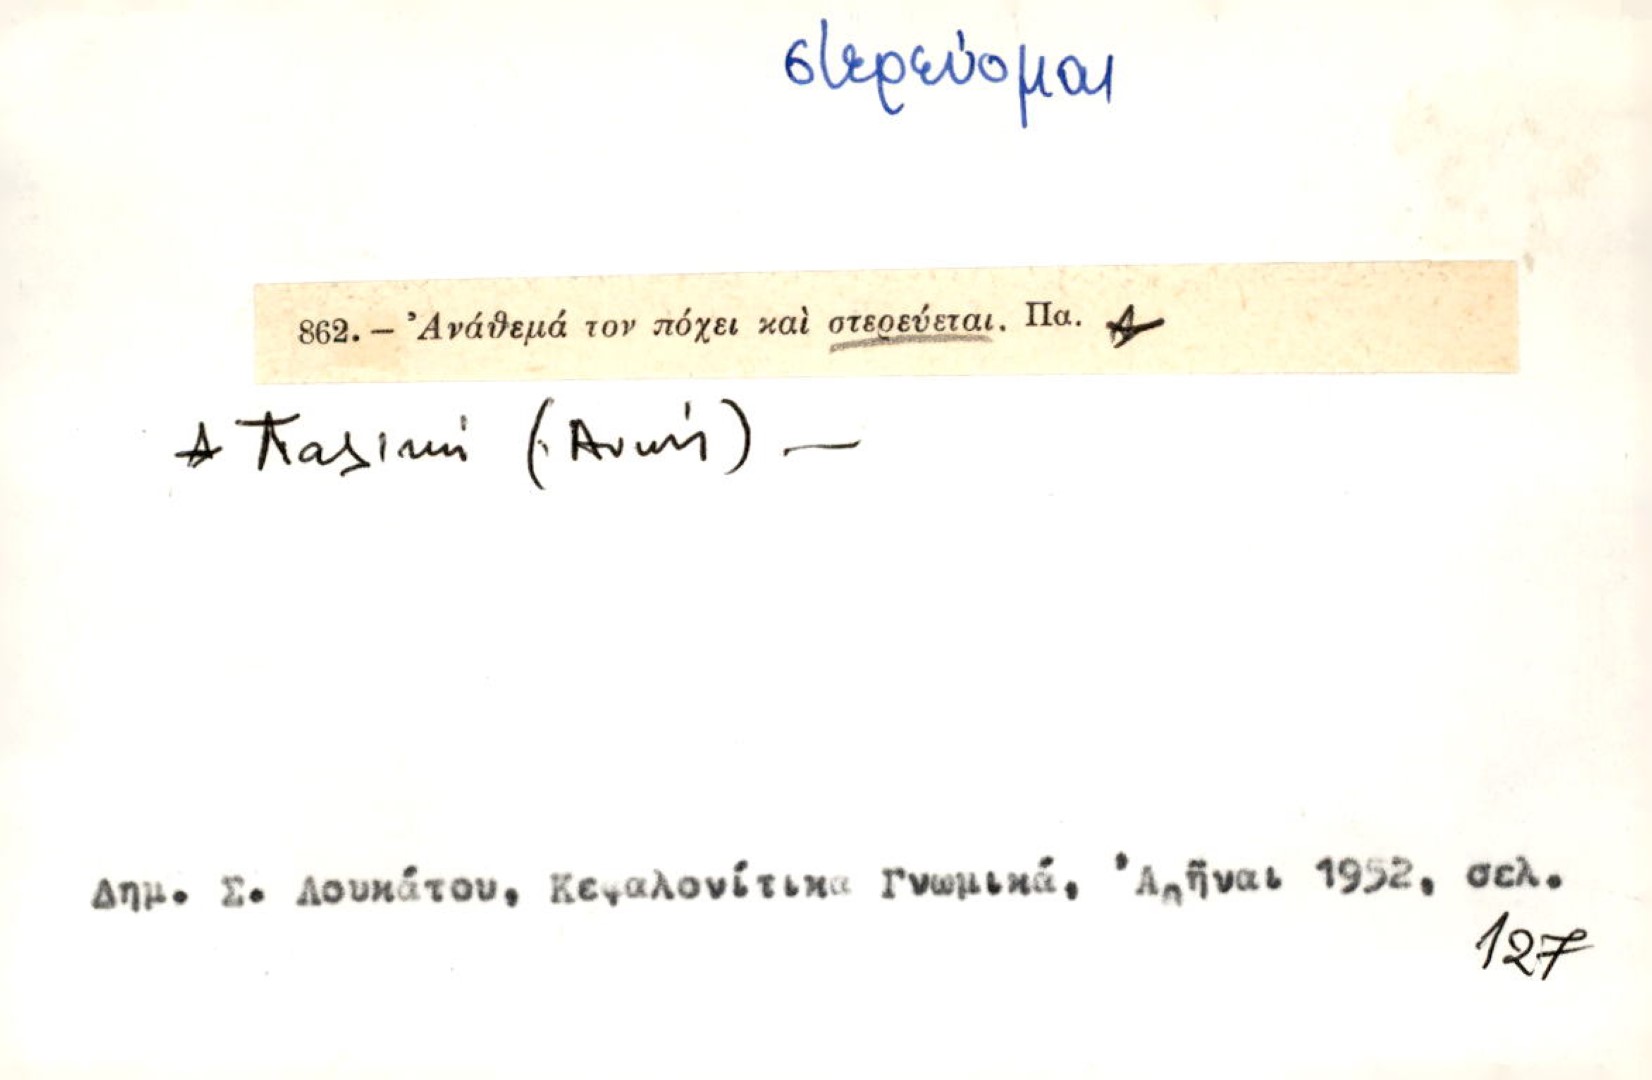 στερεύομαι
862. – Ἀνάθεμά τον πόχει καὶ στερεύεται. Πα.
Παλικὴ (Ἀνωὴ) —
Δημ. Σ. Λουκάτου, Κεφαλονίτικα Γνωμικά, Ἀθῆναι 1952, σελ.
127